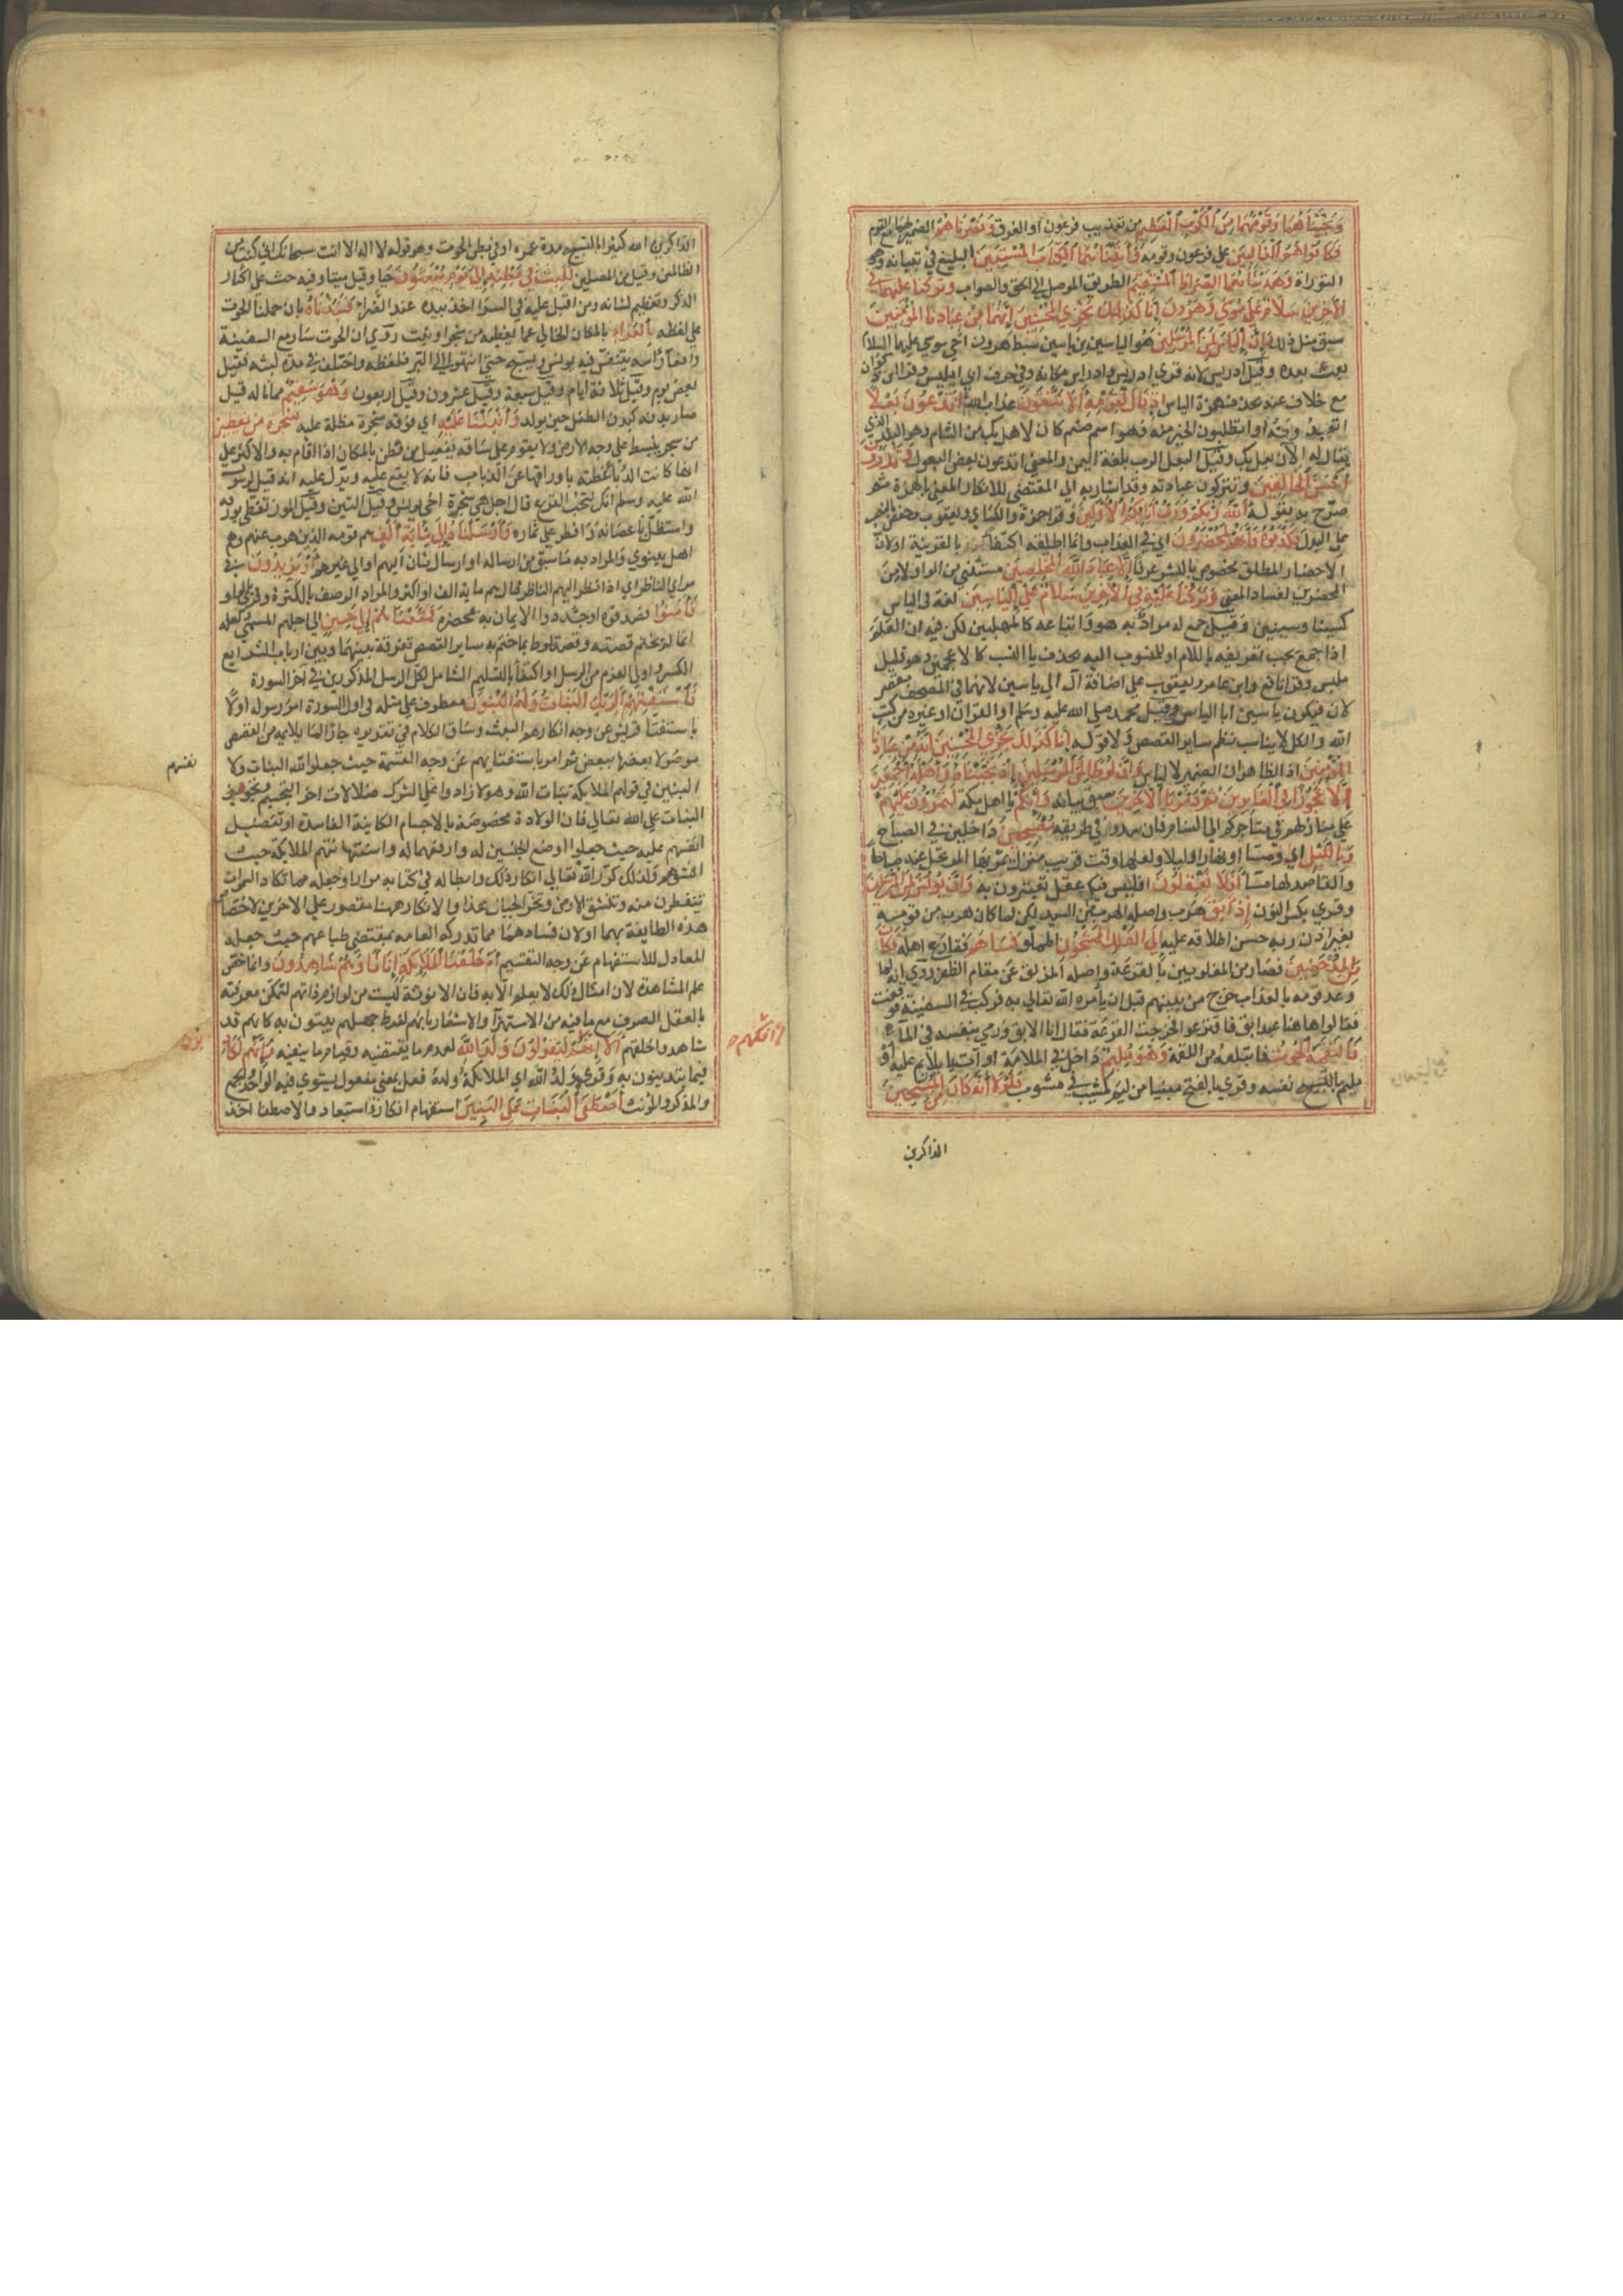 وَنَجَّيْنَاهُمَا وَقَوْمَهُمَا مِنَ الْكَرْبِ الْعَظِيمِ من تغذيب فرعون او الغرق وَنَصَرْنَاهُمْ الضمير لهما مع القوم
فَكَانُوا هُمُ الْغَالِبِينَ على فرعون وقومه وَآتَيْنَاهُمَا الْكِتَابَ الْمُسْتَبِينَ البليغ في بيانه وهو
التوراة وَهَدَيْنَاهُمَا الصِّرَاطَ الْمُسْتَقِيمَ الطريق الموصل الى الحق والصواب وَتَرَكْنَا عَلَيْهِمَا فِي
الْآخِرِينَ سَلَامٌ عَلَى مُوسَى وَهَرُونَ إِنَّا كَذَلِكَ نَجْزِي الْمُحْسِنِينَ إِنَّهُمَا مِنْ عِبَادِنَا الْمُؤْمِنِينَ
سبق مثل ذلك وَإِنَّ إِلْيَاسَ لَمِنَ الْمُرْسَلِينَ هو الياس بن ياسين سبط هرون اخي موسى عليهما السلام
بعث بعده وقيل ادريس لانه قرئ ادريس وادراس مكانه وفي حرف ابي ايليس وقرا ابن ذكوان
مع خلاف عنه بحذف همزة الياس إِذْ قَالَ لِقَوْمِهِ أَلَا تَتَّقُونَ عذاب الله أَتَدْعُونَ بَعْلًا
اتعبدونه او اتطلبون الخير منه وهو اسم صنم كان لاهل بك من الشام وهو البلد الذي
يقال له الآن بعلبك وقيل البعل الرب بلغة اليمن والمعنى اتدعون بعض البعول وَتَذَرُونَ
أَحْسَنَ الْخَالِقِينَ وتتركون عبادته وقد اشار به الى المقتضي للانكار المعني بالهمزة ثم
صرح به بقوله اللَّهُ رَبُّكُمْ وَرَبُّ آبَائِكُمُ الْأَوَّلِينَ وقرا حمزة والكسائي ويعقوب وحفص بالنصب
على البدل فَكَذَّبُوهُ فَإِنَّهُمْ لَمُحْضَرُونَ اي في العذاب وانما اطلقه اكتفاء بالقرينة او لان
الاحضار المطلق مخصوص بالشر عرفا إِلَّا عِبَادَ اللَّهِ الْمُخْلَصِينَ مستثنى من الواو لا من
المحضرين لفساد المعنى وَتَرَكْنَا عَلَيْهِ فِي الْآخِرِينَ سَلَامٌ عَلَى إِلْيَاسِينَ لغة في الياس
كسينا وسينين وقيل جمع له مراد به هو واتباعه كالمهلبين لكن فيه ان العلم
اذا جمع يجب تعريفه باللام او للمنسوب اليه بحذف يا النسب كالاعجمين وهو قليل
ملبس وقرا نافع وابن عامر ويعقوب على اضافة آل الى ياسين لانهما في المصحف مفصولان
فيكون ياسين ابا الياس وقيل محمد صلى الله عليه وسلم او القرآن او غيره من كتب
الله والكل لا يناسب نظم ساير القصص ولا قوله إِنَّا كَذَلِكَ نَجْزِي الْمُحْسِنِينَ إِنَّهُ مِنْ عِبَادِنَا
الْمُؤْمِنِينَ اذ الظاهر ان الضمير لالياس وَإِنَّ لُوطًا لَمِنَ الْمُرْسَلِينَ إِذْ نَجَّيْنَاهُ وَأَهْلَهُ أَجْمَعِينَ
إِلَّا عَجُوزًا فِي الْغَابِرِينَ ثُمَّ دَمَّرْنَا الْآخَرِينَ سبق بيانه وَإِنَّكُمْ يا اهل مكة لَتَمُرُّونَ عَلَيْهِمْ
على منازلهم في متاجركم الى الشام فان سدوم في طريقه مُصْبِحِينَ داخلين في الصباح
وَبِاللَّيْلِ اي ومساء او نهارا وليلا ولعلها وقعت قريب منزل يمر بها المرتحل عنه صباحا
والقاصد لها مساء أَفَلَا تَعْقِلُونَ افليس فيكم عقل تعتبرون به وَإِنَّ يُونُسَ لَمِنَ الْمُرْسَلِينَ
وقرئ بكسر النون إِذْ أَبَقَ هرب واصله الهرب من السيد لكن لما كان هربه من قومه
بغير اذن ربه حسن اطلاقه عليه إِلَى الْفُلْكِ الْمَشْحُونِ المملو فَسَاهَمَ فقارع اهله فَكَانَ
مِنَ الْمُدْحَضِينَ فصار من المغلوبين بالقرعة واصله المزلق عن مقام الظفر روي انه لما
وعد قومه بالعذاب خرج من بينهم قبل ان يأمره الله تعالى به فركب في السفينة فوقفت
فقالوا هاهنا عبد ابق فاقترعوا فخرجت القرعة فقال انا الابق ورمى بنفسه في الماء
فَالْتَقَمَهُ الْحُوتُ فابتلعه من اللقمة وَهُوَ مُلِيمٌ داخل في الملامة او آت بما يلام عليه او
مليم نفسه وقرئ بالفتح مبنيا من ليم كمشيب في مشوب فَلَوْلَا أَنَّهُ كَانَ مِنَ الْمُسَبِّحِينَ
الذاكرين
الذاكرين الله كثيرا بالتسبيح مدة عمره او في بطن الحوت وهو قوله لا اله الا انت سبحانك اني كنت من
الظالمين وقيل من المصلين لَلَبِثَ فِي بَطْنِهِ إِلَى يَوْمِ يُبْعَثُونَ حيا وقيل ميتا وفيه حث على اكثار
الذكر وتعظيم لشانه ومن اقبل عليه في السراء اخذ بيده عند الضراء فَنَبَذْنَاهُ بان حملنا الحوت
على لفظه بِالْعَرَاءِ بالمكان الخالي عما يغطيه من شجر او نبت روي ان الحوت سار مع السفينة
رافعا رأسه يتنفس فيه يونس ويسبح حتى انتهوا الى البر فلفظه واختلف في مدة لبثه فقيل
بعض يوم وقيل ثلاثة ايام وقيل سبعة وقيل عشرون وقيل اربعون وَهُوَ سَقِيمٌ مما ناله قيل
صار بدنه كبدن الطفل حين يولد وَأَنْبَتْنَا عَلَيْهِ اي فوقه شجرة مظلة عليه شَجَرَةً مِنْ يَقْطِينٍ
من شجر ينبسط على وجه الارض ولا يقوم على ساقه يفعيل من قطن بالمكان اذا اقام به والاكثر على
انها كانت الدباء غطته باوراقها عن الذباب فانه لا يقع عليه ويدل عليه انه قيل لرسول
الله عليه وسلم انك لتحب القرع قال اجل هي شجرة اخي يونس وقيل التين وقيل الموز تغطى بورقه
واستظل باغصانه وافطر على ثماره وَأَرْسَلْنَاهُ إِلَى مِائَةِ أَلْفٍ هم قومه الذين هرب عنهم وهم
اهل نينوى والمراد به ما سبق من ارساله او ارسال ثان اليهم او الى غيرهم أَوْ يَزِيدُونَ في
مراي الناظر اي اذا نظر اليهم الناظر قال هم ماية الف او اكثر والمراد الوصف بالكثرة وقرئ بالواو
فَآمَنُوا فصدقوه او جددوا الايمان به بمحضره فَمَتَّعْنَاهُمْ إِلَى حِينٍ الى اجلهم المسمى ولعله
انما لم يختم قصته وقصة لوط بما ختم به ساير القصص تفرقة بينهما وبين ارباب الشرايع
الكبر واولي العزم من الرسل او اكتفاء بالتسليم الشامل لكل الرسل المذكورين في آخر السورة
فَاسْتَفْتِهِمْ أَلِرَبِّكَ الْبَنَاتُ وَلَهُمُ الْبَنُونَ معطوف على مثله في اول السورة امر رسوله اولا
باستفتاء قريش عن وجه انكارهم البعث وساق الكلام في تقريره جارا لما يلايمه من القصص
موصولا بعضها ببعض ثم امر باستفتايهم عن وجه القسمة حيث جعلوا لله البنات ولا
نفسهم
البنين في قولهم الملايكة بنات الله وهولا زادوا على الشرك ضلالات اخر التجسيم وتجويز
البنات على الله تعالى فان الولادة مخصوصة بالاجسام الكاينة الفاسدة او تفضيل
انفسهم عليه حيث جعلوا اوضع الجنسين له وارفعهما له واستهانتهم الملايكة حيث
انثوهم ولذلك كرر الله تعالى انكار ذلك وابطاله في كتابه مرارا وجعله مما تكاد السموات
يتفطرن منه وتنشق الارض وتخر الجبال هدا والانكار ههنا مقصور على الاخرين لاختصاص
هذه الطايفة بهما او لان فسادهما مما تدركه العامة بمقتضى طباعهم حيث جعله
المعادل للاستفهام عن وجه التقسيم أَمْ خَلَقْنَا الْمَلَائِكَةَ إِنَاثًا وَهُمْ شَاهِدُونَ وانما خص
علم المشاهدة لان امثال ذلك لا يعلم الا به فان الانوثة ليست من لوازم ذاتهم لتمكن معرفته
بالعقل الصرف مع ما فيه من الاستهزاء والاشعار بانهم لفرط جهلهم يبتون به كانهم قد
شاهدوا خلقهم أَلَا إِنَّهُمْ لَيَقُولُونَ وَلَدَ اللَّهُ لعدم ما يقتضيه وقيام ما ينفيه وَإِنَّهُمْ لَكَاذِ
بُونَ
مِنْ إِفْكِهِمْ
فيما يتدينون به وقرئ وَلَدُ الله اي الملائكة ولده فعل بمعنى مفعول يستوي فيه الواحد والجمع
والمذكر والمؤنث أَصْطَفَى الْبَنَاتِ عَلَى الْبَنِينَ استفهام انكار واستبعاد والاصطفاء اخذ